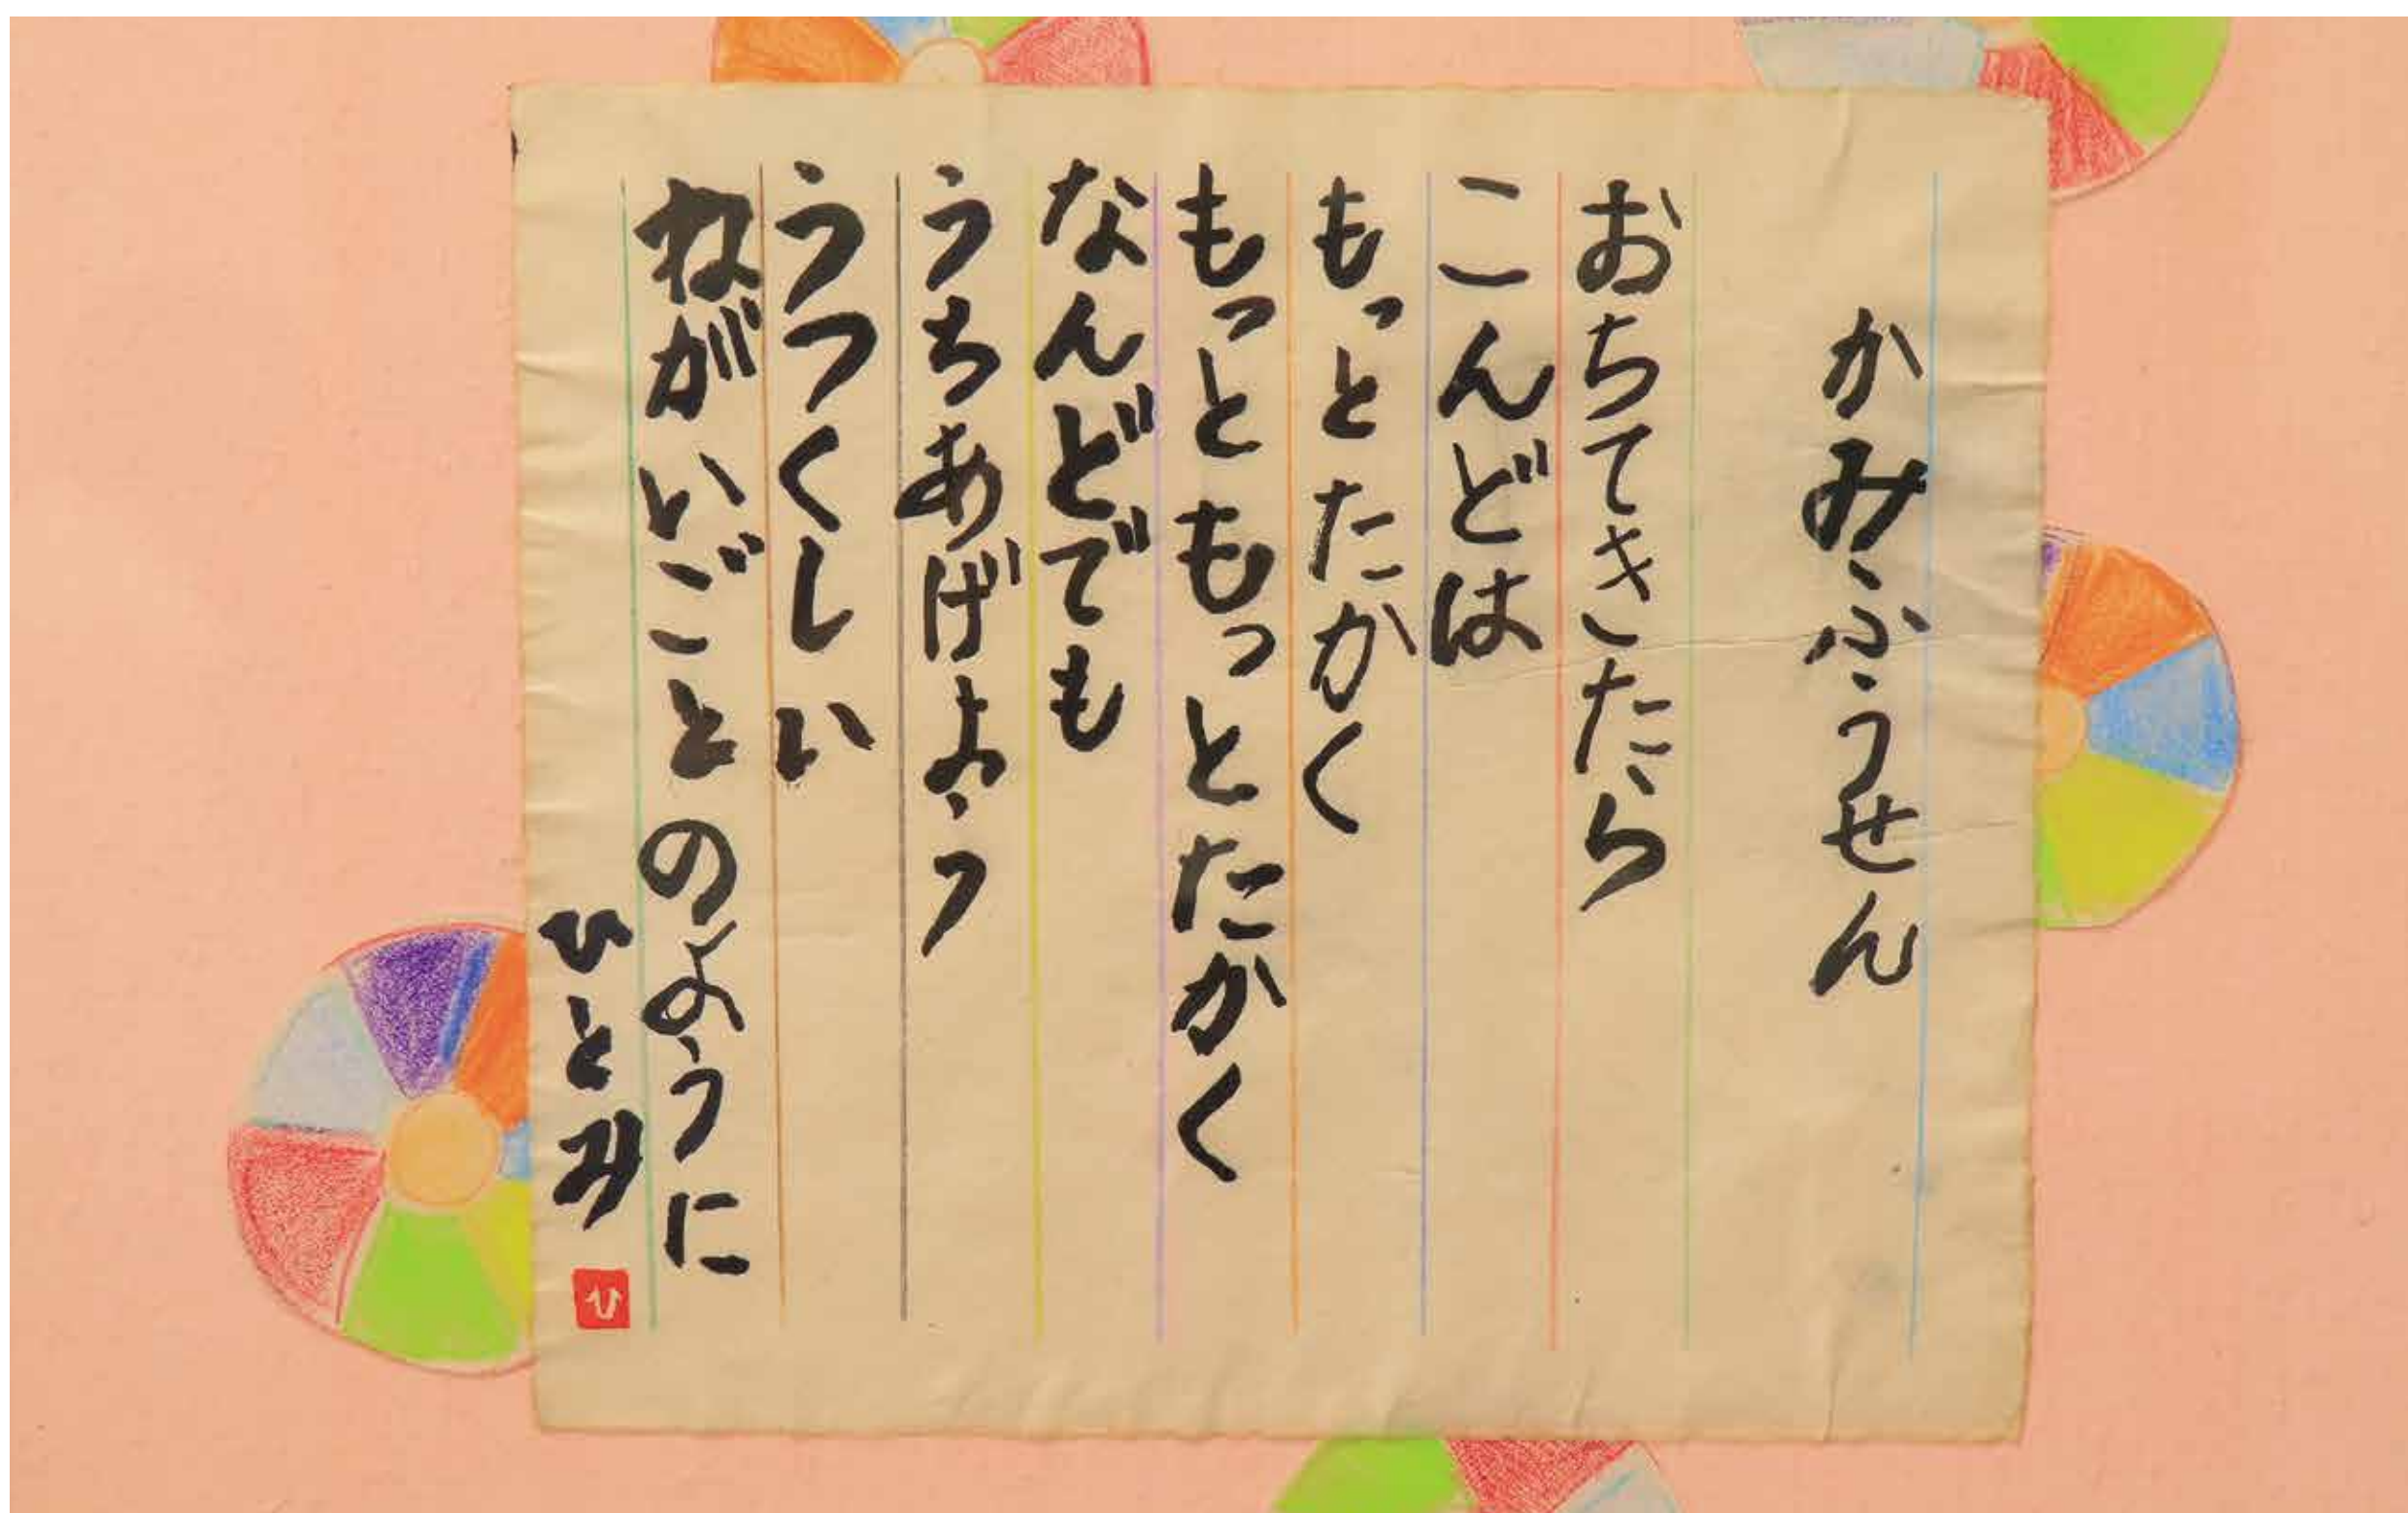 かみふうせん
おちてきたら
こんどは
もっとたかく
もっともっとたかく
なんどでも
うちあげよう
うつくしい
ねがいごとのように
ひとみ
ひ